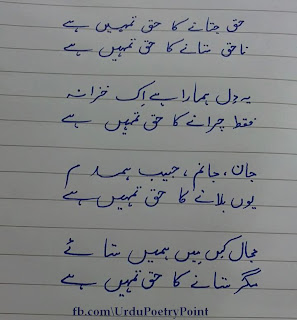 حق جتانے کا حق تمہیں ہے
ناحق ستانے کا حق تمہیں ہے
یہ دل ہمارا ہے اِک خزانہ
فقط چرانے کا حق تمہیں ہے
جان، جانم، حبیب ہمدم
یوں بلانے کا حق تمہیں ہے
مجال کس میں ہمیں ستائے
مگر ستانے کا حق تمہیں ہے
fb.com/UrduPoetryPoint